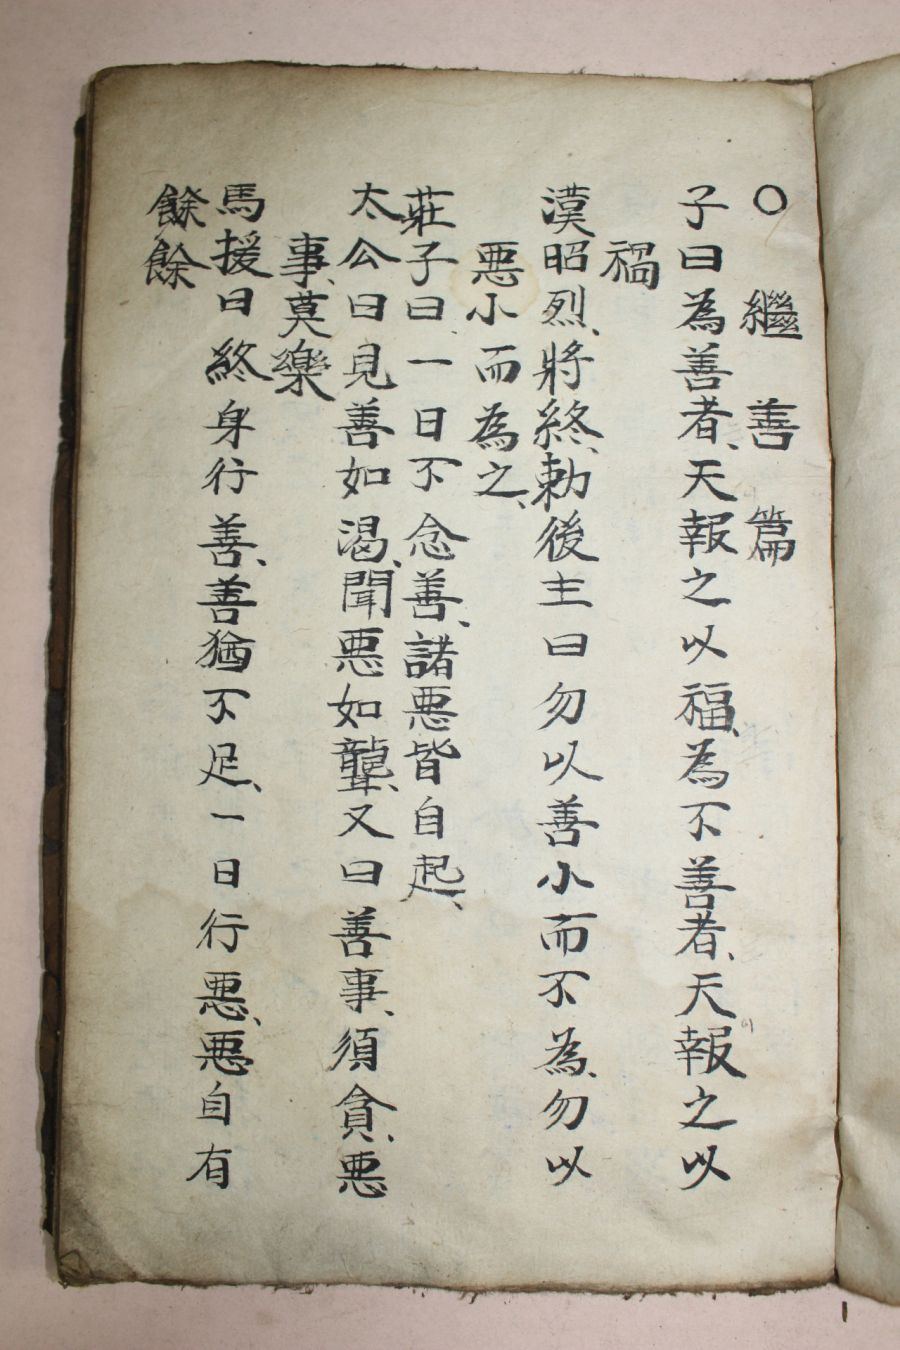 ○繼善篇
子曰為善者、天報之以福、為不善者、天報之以
禍
漢昭烈、將終、勅後主曰勿以善小而不為、勿以
惡小而為之、
莊子曰、一日不念善、諸惡皆自起、
太公曰見善如渴、聞惡如聾、又曰善事、須貪、惡
事、莫樂
馬援曰終身行善、善猶不足、一日行惡、惡自有
餘餘